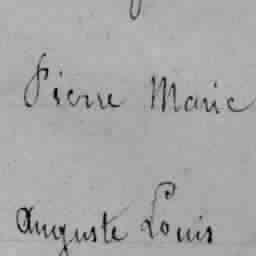 Pierre Marie
Auguste Louis